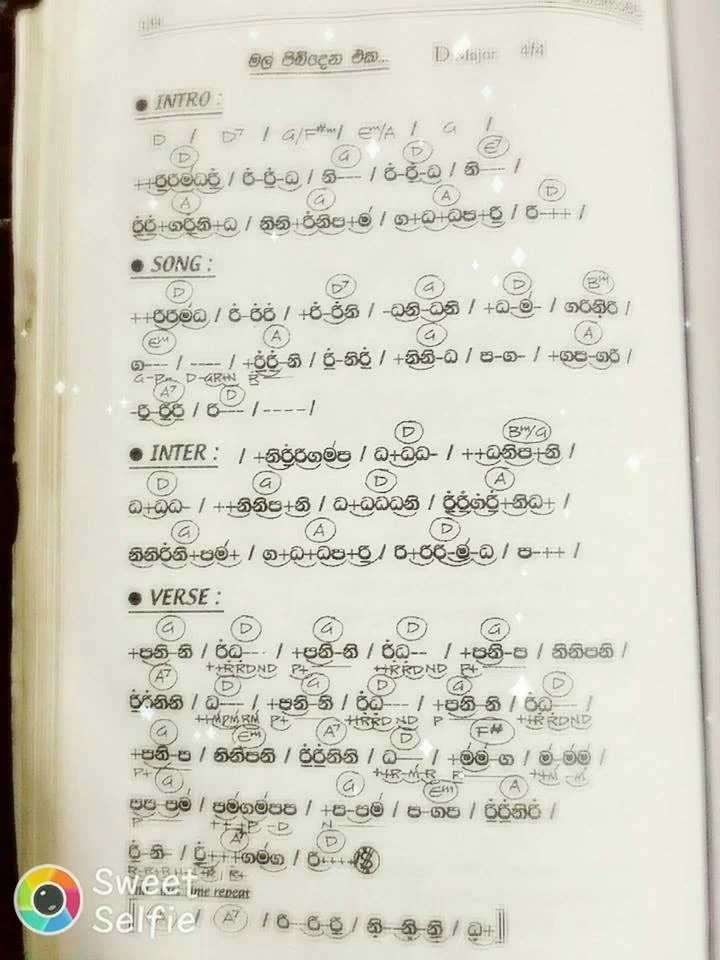 මල් පිබිදෙන එක... D Major 4/4
● INTRO :
D / D7 / G/F#m / Em/A / G /
D G D E7
++රිරිම්ධරි / රි-රි-ධ / නි--- / රි-රි-ධ / නි--- /
A G A D
රිරි+ගරිනි+ධ / නිනි+රිනිප+ම් / ග+ධ+ධප+රි / රි-++ /
● SONG :
D D7 G D Bm
++රිරිම්ධ / රි-රිරි / +රි-රිනි / -ධනි-ධනි / +ධ-ම්- / ගරිනිරි /
Em A G A
ග--- / ---- / +රිරි-නි / රි-නිරි / +නිනි-ධ / ප-ග- / +ගප-ගරි /
A7 D
-රි-රිරි / රි--- / ---- /
● INTER : / +නිරිරිගම්ප / ධ+ධධ- / ++ධනිප+නි /
D Bm/G
D G D A
ධ+ධධ- / ++නිනිප+නි / ධ+ධධධනි / රිරිගරි+නිධ+ /
G A D
නිනිරිනි+පම්+ / ග+ධ+ධප+රි / රි+රිරි-ම්-ධ / ප-++ /
● VERSE :
G D G D G
+පනි-නි / රිධ--- / +පනි-නි / රිධ--- / +පනි-ප / නිනිපනි /
++RRDND P+ ++RRDND P+
A7 D G D G D
රිරිනිනි / ධ--- / +පනි-නි / රිධ--- / +පනි-නි / රිධ--- /
++MPMRM P+ ++RRDND P ++RRDND
G Em A7 D F#
+පනි-ප / නිනිපනි / රිරිනිනි / ධ--- / +ම්ම්-ග / ම්-ම්ම් /
P+ ++R-M-R R ++M-M
G G Em A
පප-පම් / පම්ගම්පප / +ප-පම් / ප-ගප / රිරිනිරි /
A7 D
රි-නි- / රි+++ගම්ග / රි+++
time repeat
A7 / රි--රි-රි / නි--නි-නි / ධ+
Sweet
Selfie